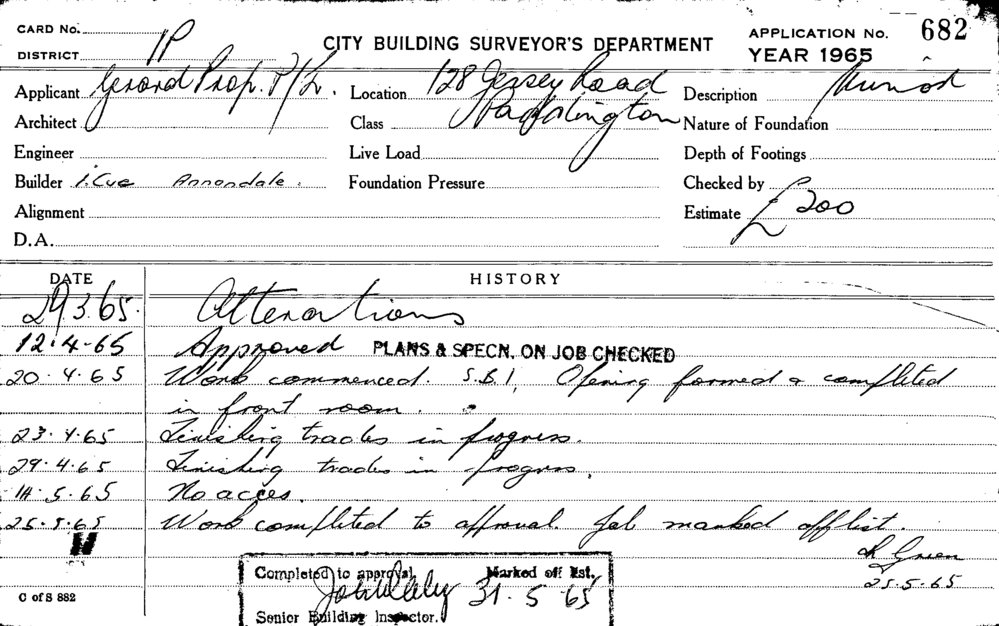 CARD No.
682
DISTRICT 1P
CITY BUILDING SURVEYOR'S DEPARTMENT
APPLICATION No.
YEAR 1965
Applicant Gerard Prop. P/L. Location 128 Jersey Road Description
Architect Class Paddington Nature of Foundation
Engineer Live Load Depth of Footings
Builder Annandale. Foundation Pressure Checked by
Alignment Estimate £200
D.A.
DATE HISTORY
29.3.65. Alterations
12.4-65 Approved PLANS & SPECN. ON JOB CHECKED
20.4.65 Work commenced. S.B.I. Opening formed & completed
in front room.
23.4.65 Finishing trades in progress.
29.4.65 Finishing trades in progress.
14.5.65 No acces.
25.5.65 Work completed to approval. Job marked off list.
Green
25.5.65
Completed to approval Marked off list.
31.5.65
Senior Building Inspector.
C of S 882